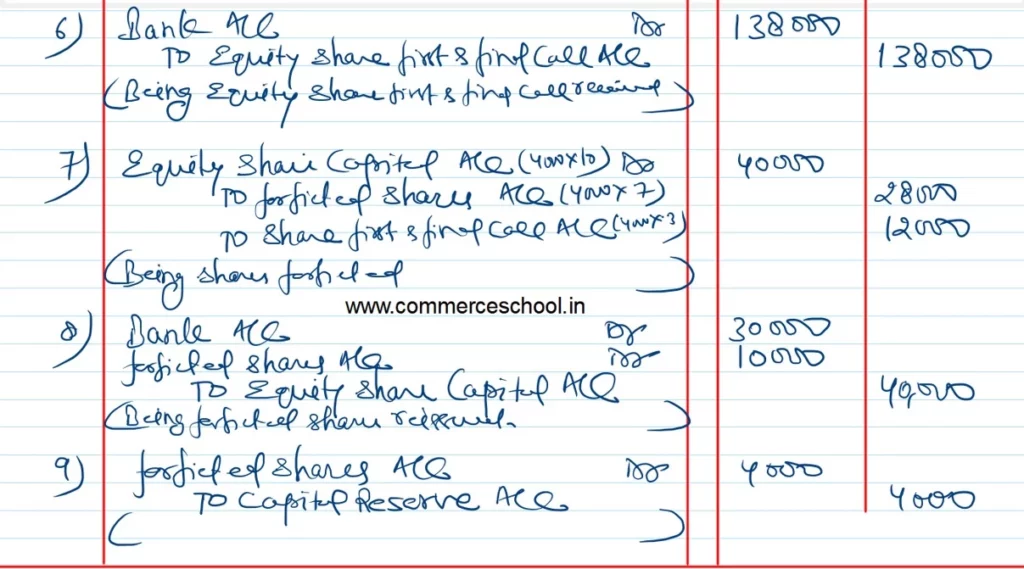 6) Bank A/c Dr 138000
To Equity Share first & final Call A/c 138000
(Being Equity Share first & final call received)
7) Equity Share Capital A/c (4000x10) Dr 40000
To forfieted Shares A/c (4000x7) 28000
To Share first & final Call A/c (4000x3) 12000
(Being shares forfieted)
www.commerceschool.in
8) Bank A/c Dr 30000
forfieted shares A/c Dr 10000
To Equity Share Capital A/c 40,000
(Being forfieted share reissued.)
9) forfieted shares A/c Dr 4000
To Capital Reserve A/c 4000
( )